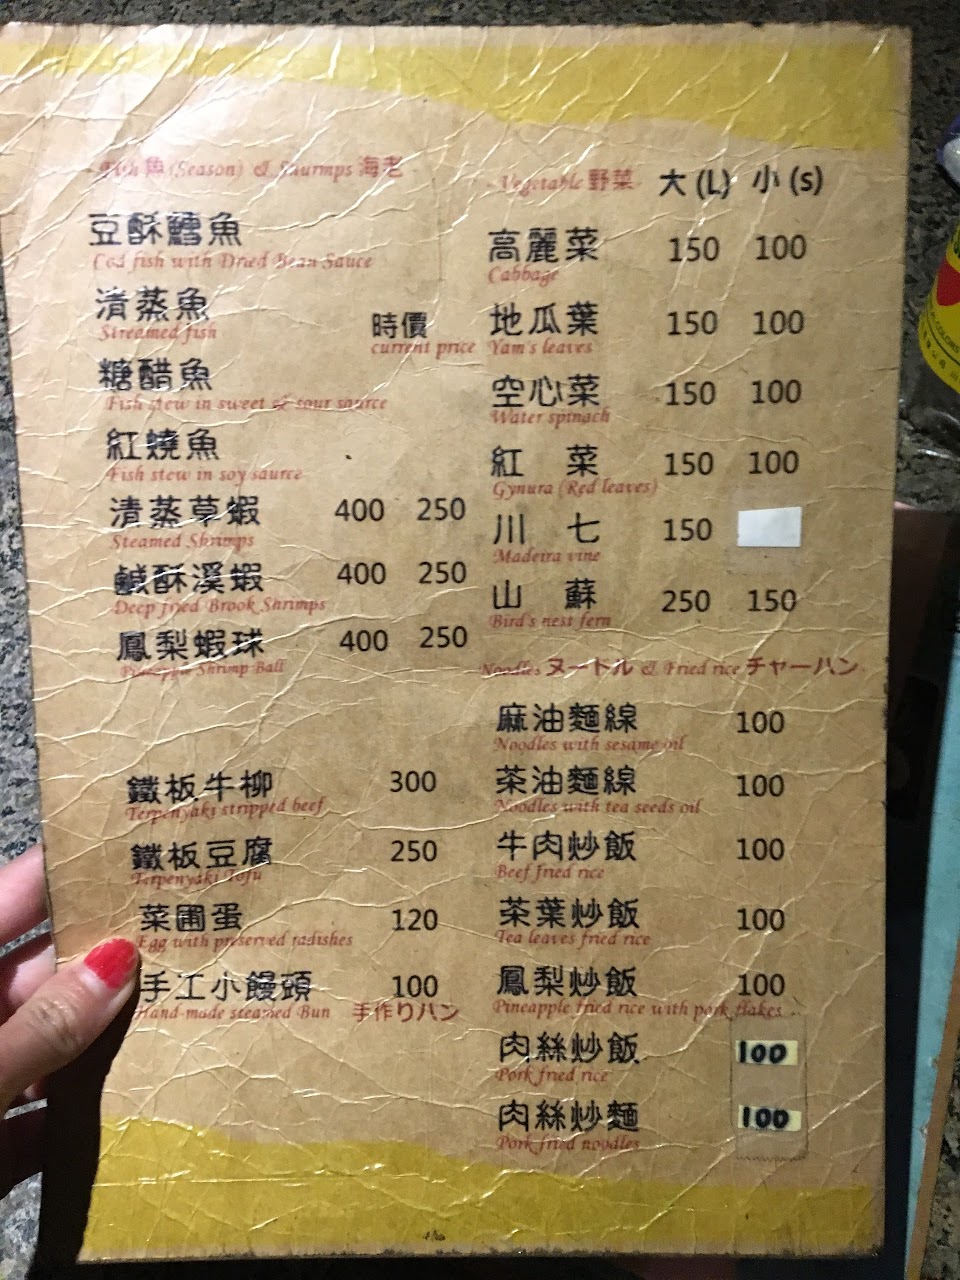 Fish 魚 (Season) & Shurmps 海老
豆酥鱈魚
Cod fish with Dried Bean Sauce
清蒸魚
Streamed fish
時價
current price
糖醋魚
Fish stew in sweet & sour saurce
紅燒魚
Fish stew in soy saurce
清蒸草蝦 400 250
Steamed Shrimps
鹹酥溪蝦 400 250
Deep fried Brook Shrimps
鳳梨蝦球 400 250
Pineapple Shrimp Ball
鐵板牛柳 300
Terpenyaki stripped beef
鐵板豆腐 250
Terpenyaki Tofu
菜圃蛋 120
Egg with preserved radishes
手工小饅頭 100
Hand-made steamed Bun 手作りハン
Vegetable 野菜 大 (L) 小 (s)
高麗菜 150 100
Cabbage
地瓜葉 150 100
Yam's leaves
空心菜 150 100
Water spinach
紅 菜 150 100
Gynura (Red leaves)
川 七 150
Madeira vine
山 蘇 250 150
Bird's nest fern
Noodles ヌートル & Fried rice チャーハン
麻油麵線 100
Noodles with sesame oil
茶油麵線 100
Noodles with tea seeds oil
牛肉炒飯 100
Beef fried rice
茶葉炒飯 100
Tea leaves fried rice
鳳梨炒飯 100
Pineapple fried rice with pork flakes
肉絲炒飯 100
Pork fried rice
肉絲炒麵 100
Pork fried noodles